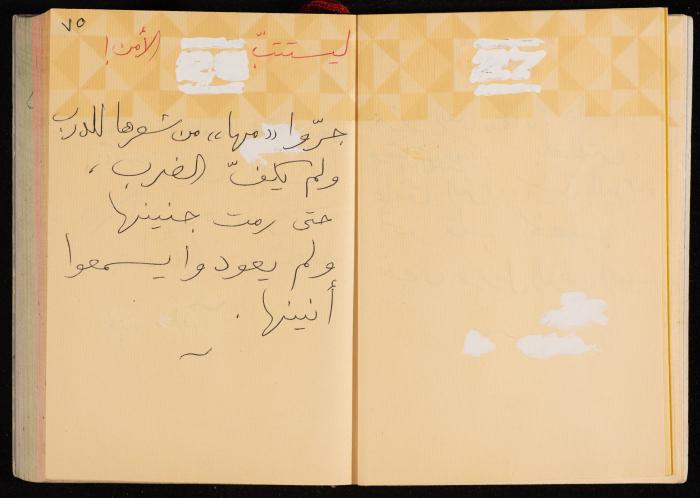 ٧٥
ليستتبّ الأمن!
جرّوا «مها»، من شعرها للدرب
ولم يكفّ الضرب،
حتى رمت جنينها
ولم يعودوا يسمعوا
أنينها.
27